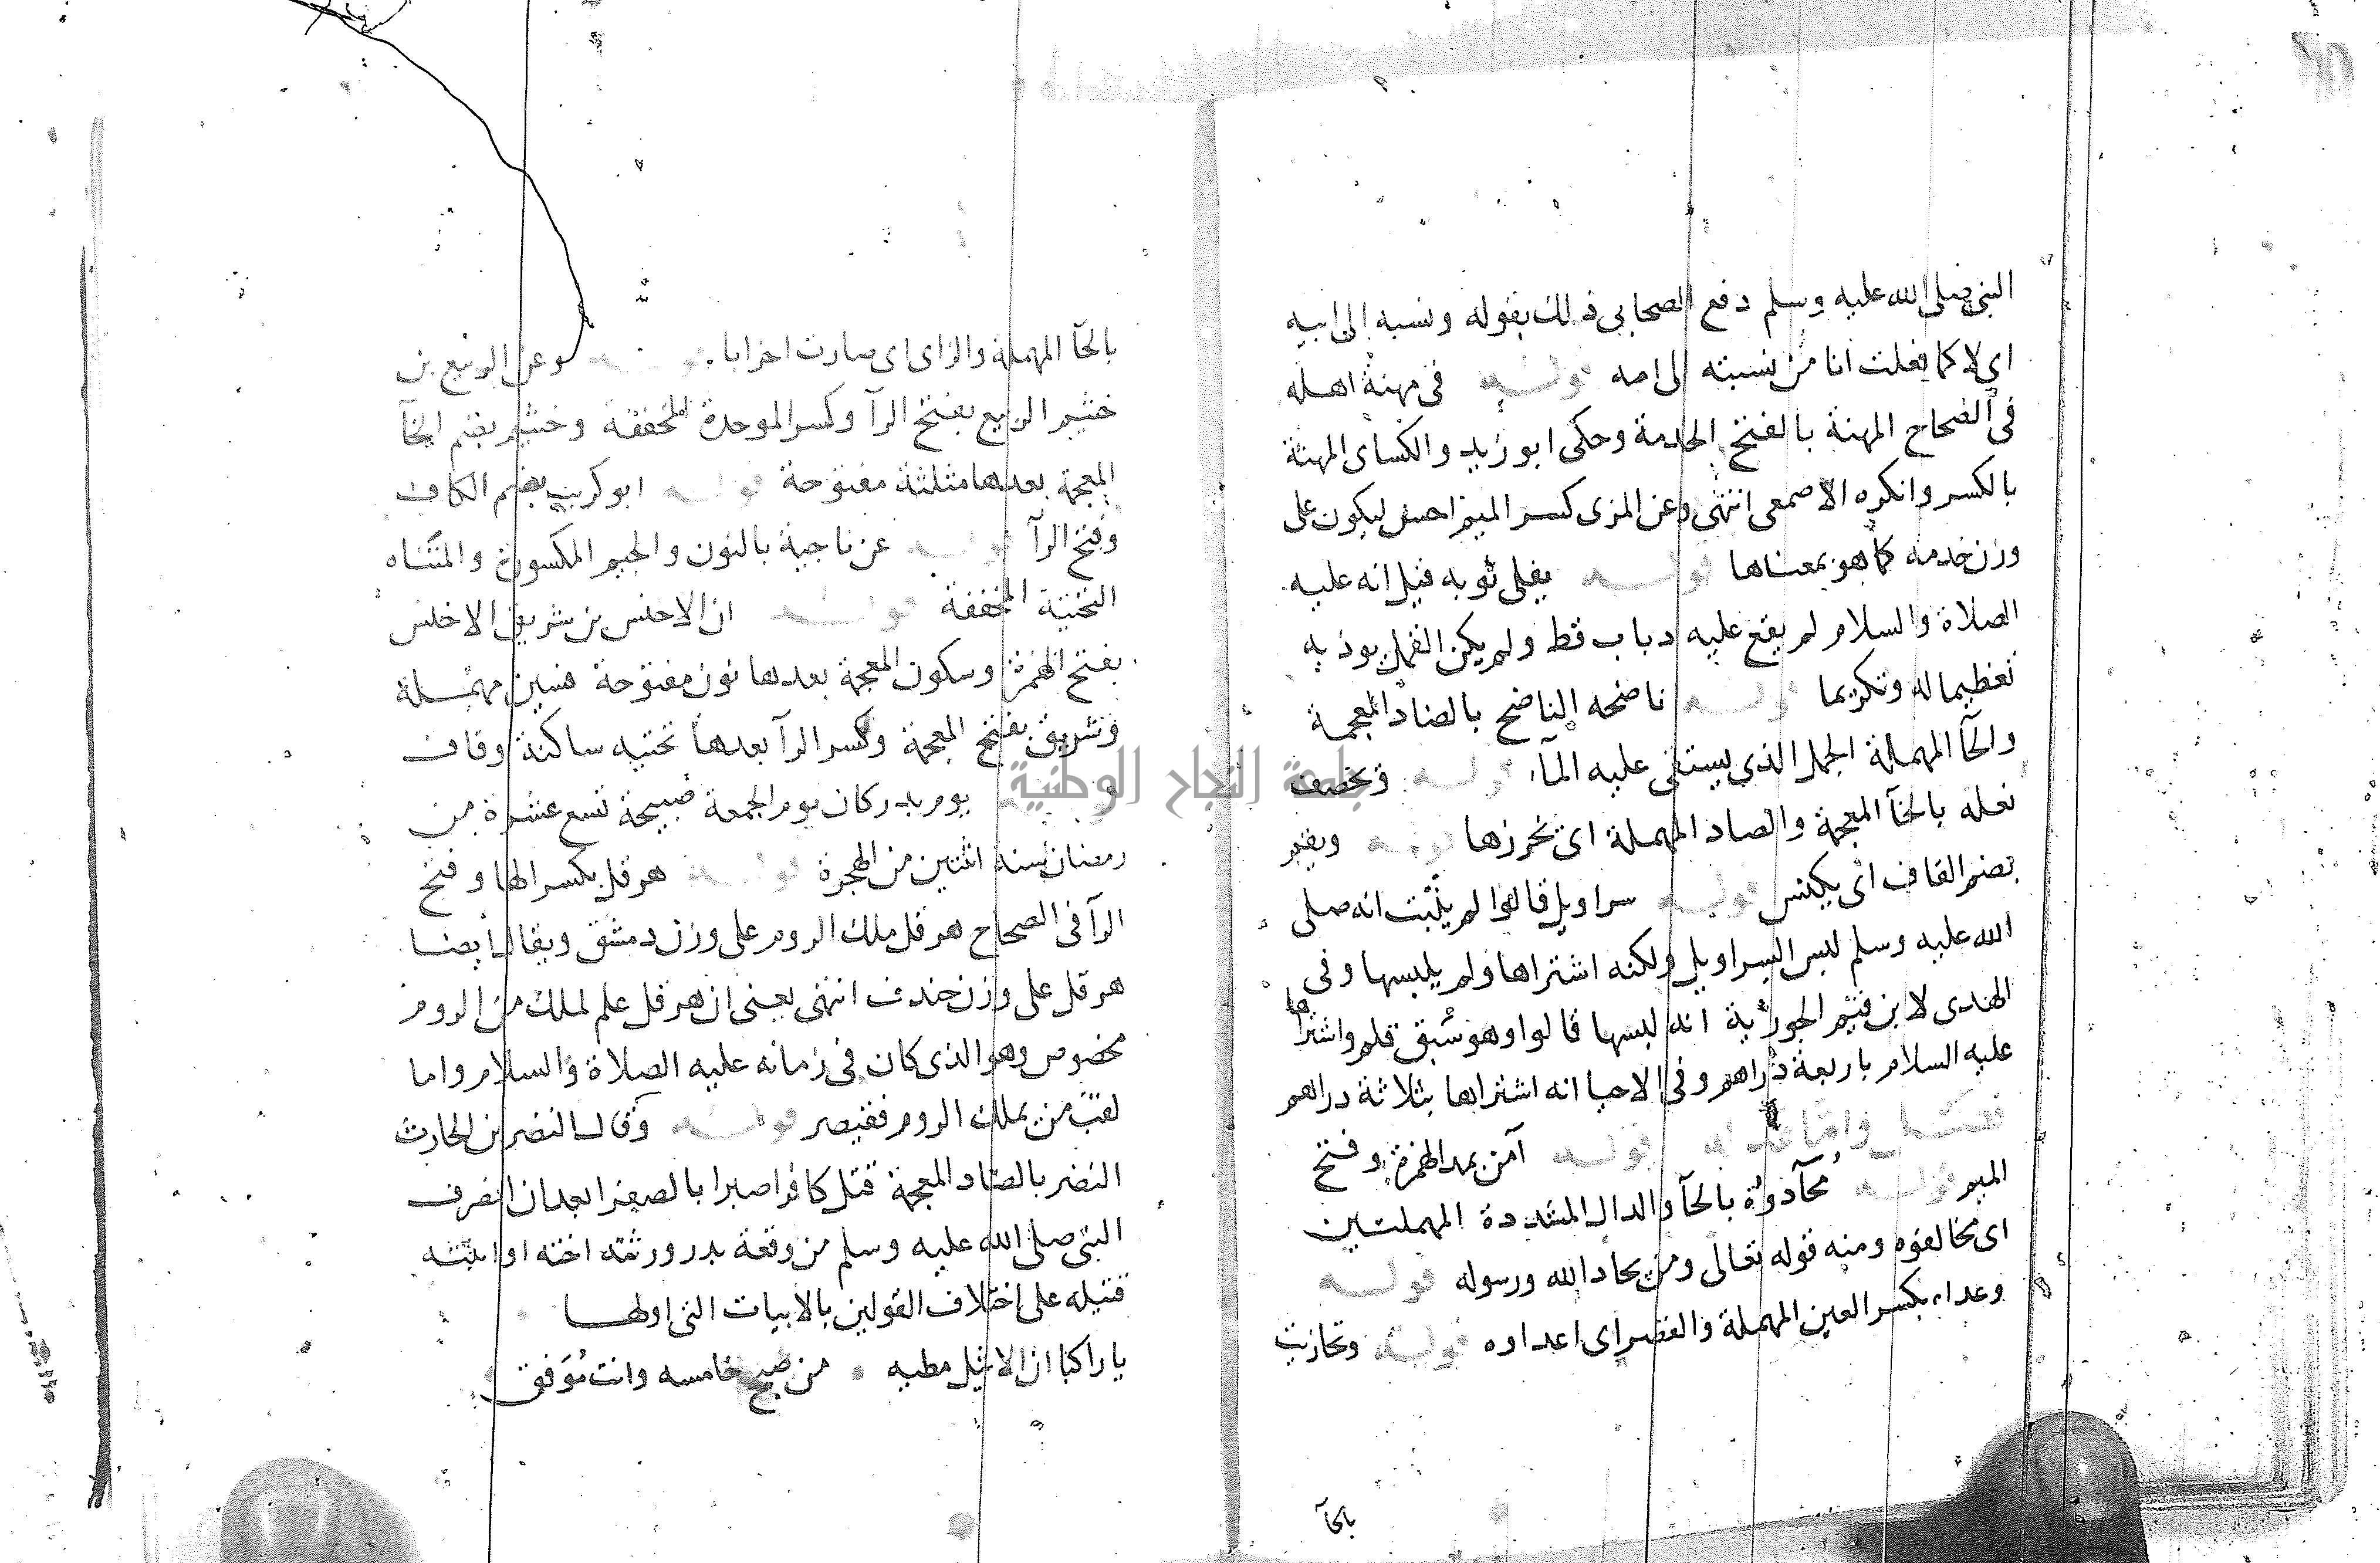 النبي صلى الله عليه وسلم دفع الصحابي ذلك بقوله ونسبه الى ابيه
اي لا كما فعلت انا من نسبته الى امه قوله في مهنة اهله
في الصحاح المهنة بالفتح الخدمة وحكى ابو زيد والكساى المهنة
بالكسر وانكره الاصمعى انتهى وعن المزى كسر الميم احسن ليكون على
وزن خدمة كما هو بمعناها قوله يفلى ثوبه قيل انه عليه
الصلاة والسلام لم يقع عليه ذباب قط ولم يكن القمل يوذيه
تعظيما له وتكريما قوله ناضحه الناضح بالضاد المعجمة
والحآ المهملة الجمل الذى يستقى عليه المآء قوله ويخصف
نعله بالخآ المعجمة والصاد المهملة اى يخرزها قوله ويقم
بضم القاف اى يكنس قوله سراويل قالوا لم يثبت انه صلى
الله عليه وسلم لبس السراويل ولكنه اشتراها ولم يلبسها وفى
الهدى لابن قيم الجوزية انه لبسها قالوا وهو سبق قلم واشتراها
عليه السلام باربعة دراهم وفى الاحيا انه اشتراها بثلاثة دراهم
قوله آمن بمد الهمزة وفتح
الميم قوله محآدوه بالحآ والدال المشددة المهملتين
اى مخالفوه ومنه قوله تعالى ومن يحاد الله ورسوله قوله
وعداه بكسر العين المهملة والقصر اى اعداوه قوله وتحازبت
بالحآ
بالحآ المهملة والزاى اى صارت احزابا قوله وعن الربيع بن
خثيم الربيع بفتح الرآ وكسر الموحدة المخففة وخثيم بضم الخآ
المعجمة بعدها مثلثة مفتوحة قوله ابو كريب بضم الكاف
وفتح الرآ قوله عن ناجية بالنون والجيم المكسورة والمثناه
التحتية المخففة قوله ان الاخنس بن شريق الاخنس
بفتح الهمزة وسكون المعجمة بعدها نون مفتوحة فسين مهملة
وشريق بفتح المعجمة وكسر الرآ بعدها تحتيه ساكنة وقاف
قوله يوم بدر كان يوم الجمعة صبيحة تسع عشرة من
رمضان سنه اثنتين من الهجرة قوله هرقل بكسر الها وفتح
الرآ فى الصحاح هرقل ملك الروم على وزن دمشق ويقال ايضا
هرقل على وزن خندف انتهى يعنى ان هرقل علم لملك من الروم
مخصوص وهو الذى كان فى زمانه عليه الصلاة والسلام واما
لقب من يملك الروم فقيصر قوله وقال النضر بن الحارث
النضر بالضاد المعجمة قتل كافرا صبرا بالصفرا بعد ان انصرف
النبى صلى الله عليه وسلم من وقعة بدر ورثته اخته او ابنته
قتيله على اختلاف القولين بالابيات التى اولها
يا راكبا ان الاثيل مطيه من صبح خامسه وانت مُوَفق
جامعة النجاح الوطنية